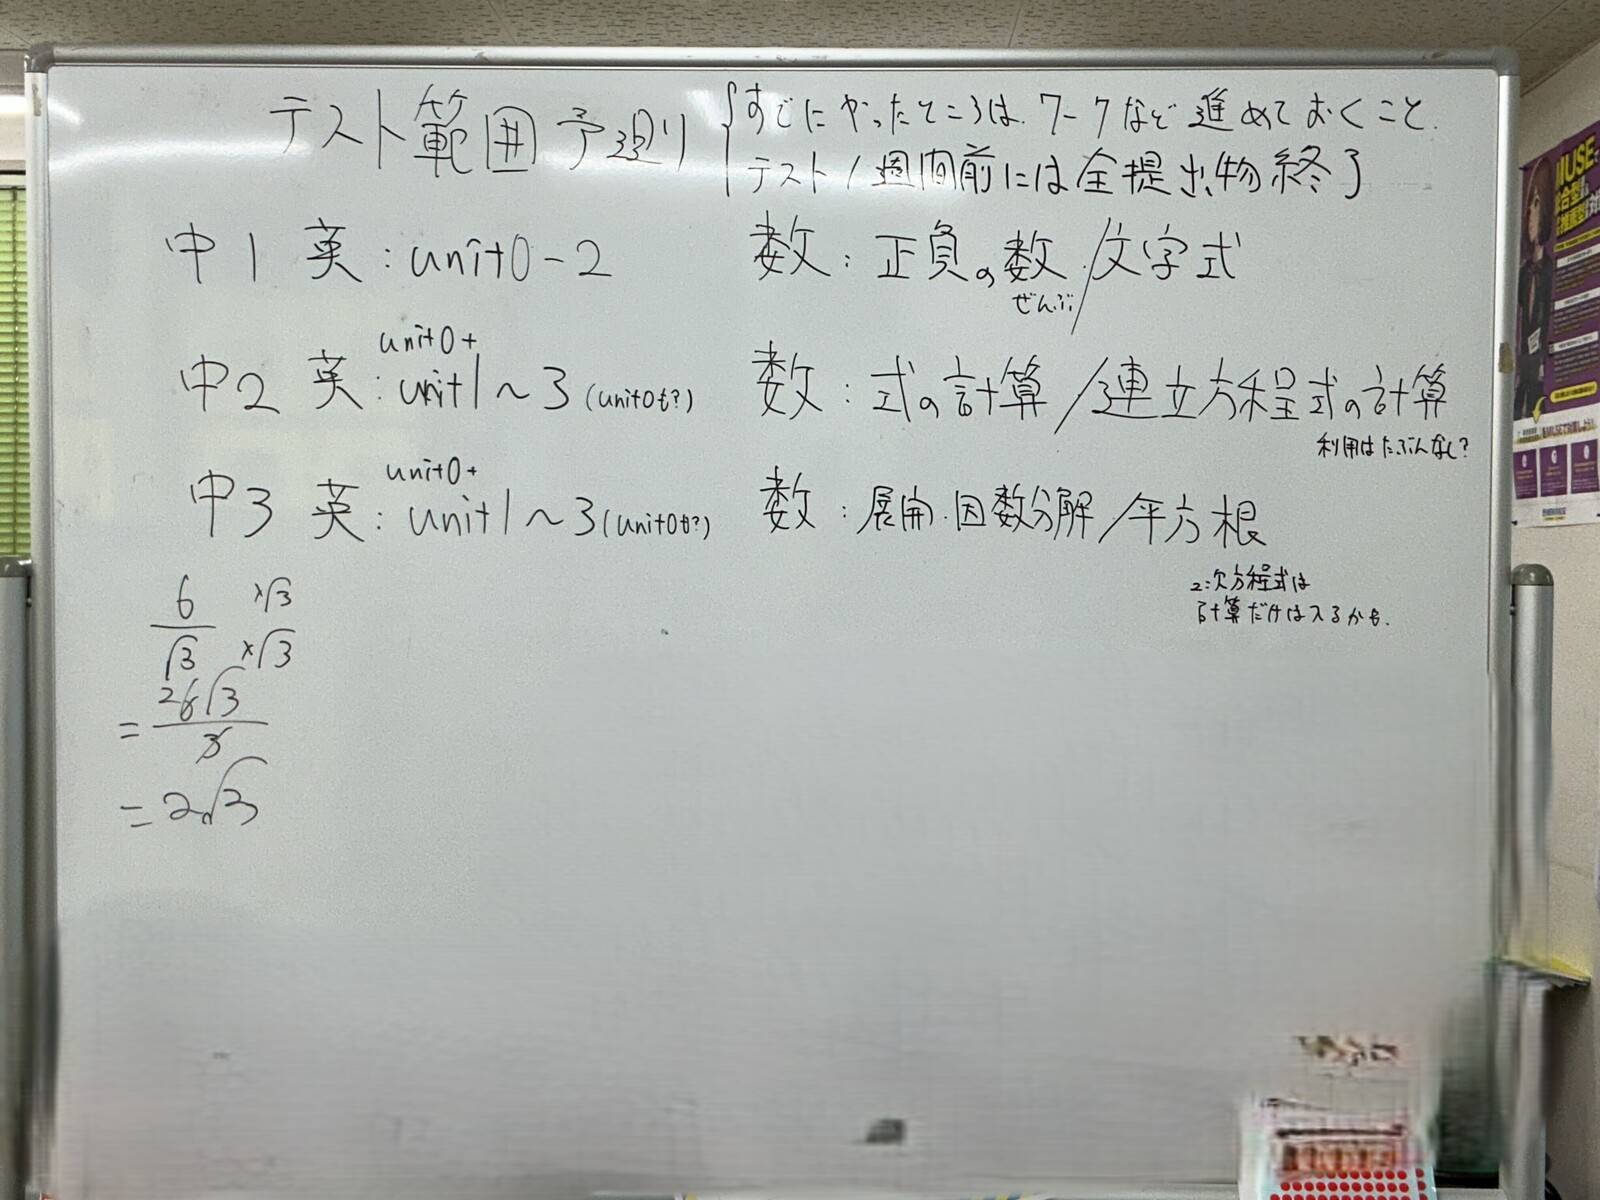 テスト範囲予測
すでにやったところは、ワークなど進めておくこと.
テスト1週間前には全提出物終了
中1 英:unit0-2 数:正負の数/文字式
ぜんぶ
unit0+
中2 英:unit1~3(unit0も?) 数:式の計算/連立方程式の計算
利用はたぶんなし?
unit0+
中3 英:unit1~3(unit0も?) 数:展開・因数分解/平方根
2次方程式は
計算だけは入るかも.
6 ×√3
√3 ×√3
= 26√3
3
= 2√3
MUSE